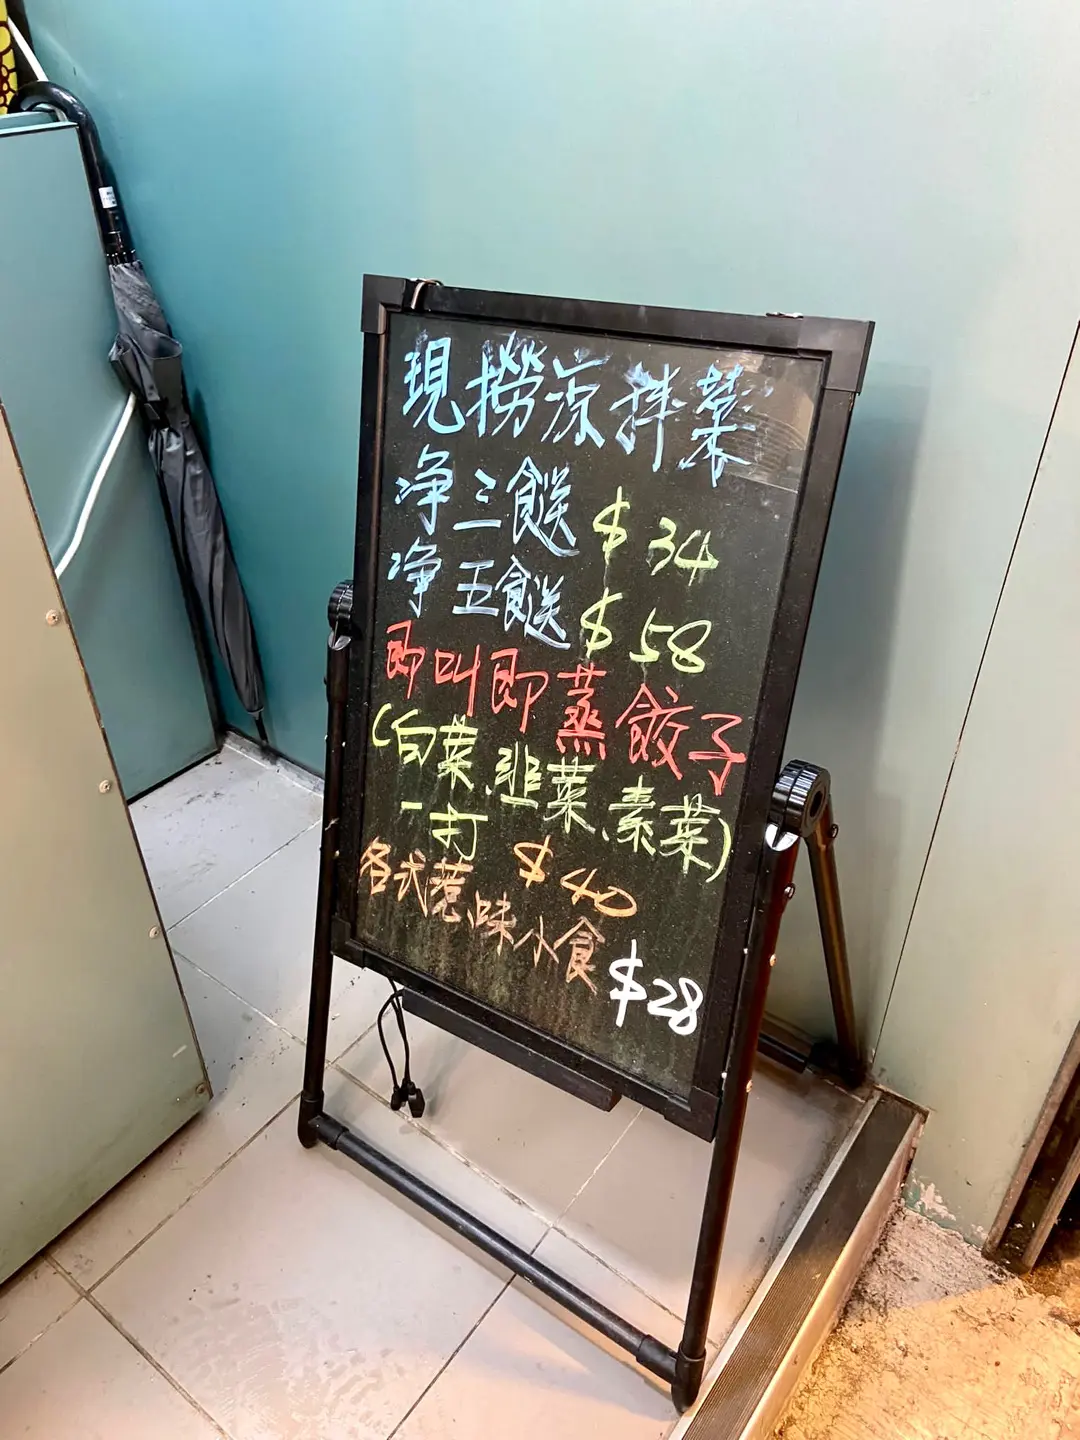 現撈涼拌菜
净三餸 $34
净五餸 $58
即叫即蒸餃子
(白菜、韭菜、素菜)
一打 $40
各式惹味小食
$28